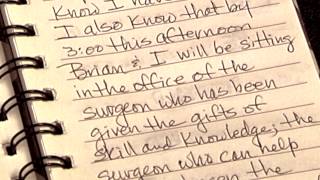 Know I have
I also know that by
3:00 this afternoon
Brian & I will be sitting
in the office of the
surgeon who has been
given the gifts of
skill and knowledge; the
surgeon who can help
the